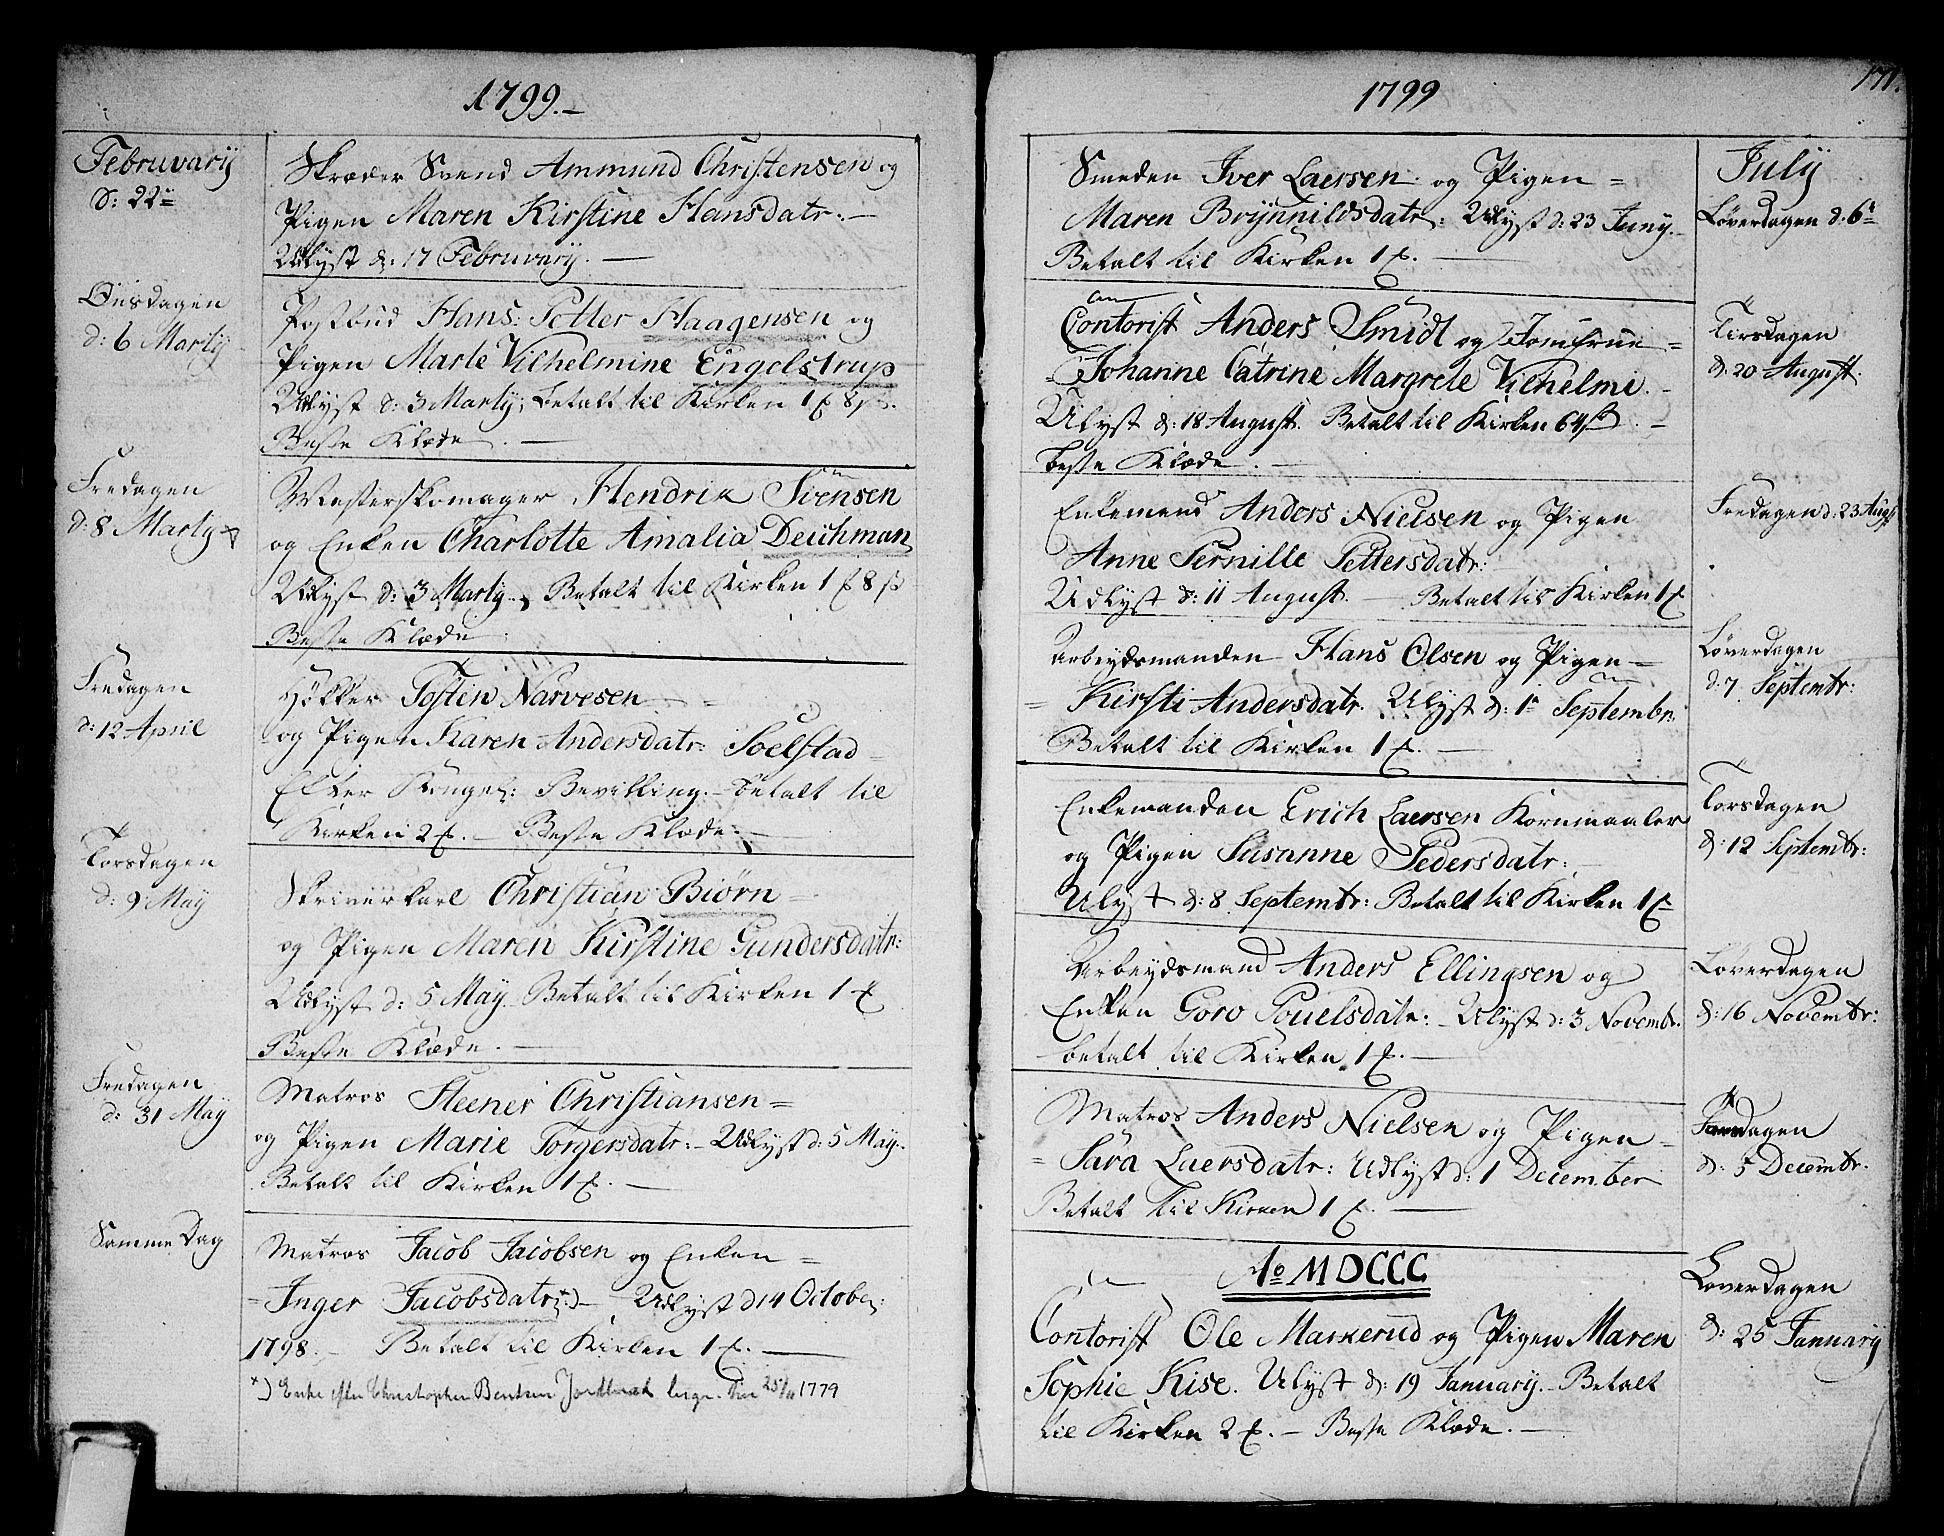 1799.
Februvarij
d: 22de
Skræder Svend Ammund Christensen og
Pigen Maren Kirstine Hansdatr:
Udlyst d: 17 Februvarij.
Onsdagen
d: 6 Martij
Postbud Hans Petter Haagensen og
Pigen Marte Vilhelmine Engelstrup
Udlyst d: 3 Martij, betalt til Kirken 1 f 8 s.
Beste Klæde.
Fredagen
d: 8 Martij
Mesterskomager Hendrik Svensen
og Enken Charlotte Amalia Deichman
Udlyst d: 3 Martij. Betalt til Kirken 1 f 8 s
Beste Klæde
Fredagen
d: 12 April
Høkker Tosten Narvesen
og Pigen Karen Andersdatr: Soelstad
Efter Kongel: Bevilling. betalt til
Kirken 2 f. Beste Klæde.
Torsdagen
d: 9 May
Skriverkarl Christian Biørn
og Pigen Maren Kirstine Gundersdatr:
Udlyst d: 5 May. Betalt til Kirken 1 f
Beste Klæde.
Fredagen
d: 31 May
Matros Steener Christiansen
og Pigen Marie Torgersdatr: Udlyst d: 5 May.
Betalt til Kirken 1 f.
Samme Dag
Matros Jacob Jacobsen og Enken
Inger Jacobsdatr x) Udlyst d 14 October
1798. Betalt til Kirken 1 f.
x) Enke efter Christopher Bentsen 1779
1799
171.
July
Løverdagen d: 6te
Smeden Iver Laersen og Pigen
Maren Brynnildsdatr: Udlyst d: 23 Juny.
Betalt til Kirken 1 f.
Tirsdagen
d: 20 August.
Contorist Anders Smidt og Jomfrue
Johanne Catrine Margrete Vilhelmi.
Ulyst d: 18 August. Betalt til Kirken 64 s.
beste Klæde.
Fredagen d: 23 Aug
Enkemand Anders Nielsen og Pigen
Anne Pernille Pettersdatr:
Udlyst d: 11 August. Betalt til Kirken 1 f
Løverdagen
d: 7 Septembr:
Arbeydsmanden Hans Olsen og Pigen
Kirsti Andersdatr. Ulyst d: 1te Septembr.
Betalt til Kirken 1 f.
Torsdagen
d: 12 Septembr:
Enkemanden Erich Laersen Kornmaaler
og Pigen Susanne Pedersdatr:
Ulyst d: 8 Septembr: Betalt til Kirken 1 f
Løverdagen
d: 16 Novembr:
Arbeydsmand Anders Ellingsen og
Enken Goro Pouelsdatr: Ulyst d: 3 Novembr.
betalt til Kirken 1 f.
Torsdagen
d: 5 Decembr.
Matros Anders Nielsen og Pigen
Sara Laersdatr: Udlyst d: 1 December
Betalt til Kirken 1 f.
Ao MDCCC
Løverdagen
d: 25 January
Contorist Ole Markerud og Pigen Maren
Sophie Kise. Ulyst d: 19 January. Betalt
til Kirken 2 f. Beste Klæde.